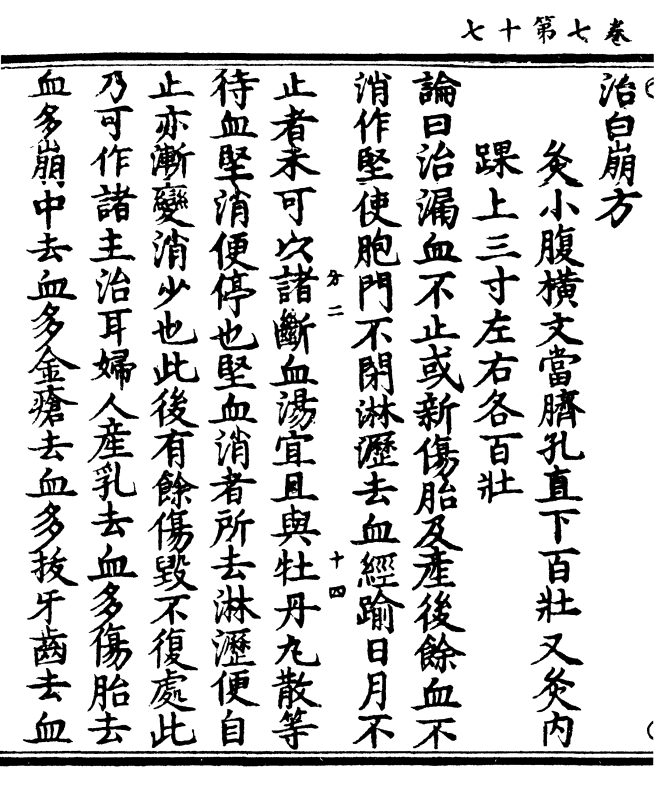 卷七第十七
治白崩方
灸小腹橫文當臍孔直下百壯又灸內
踝上三寸左右各百壯
論曰治漏血不止或新傷胎及產後餘血不
消作堅使胞門不閉淋瀝去血經踰日月不
止者未可以諸斷血湯宜且與牡丹丸散等
方二
十四
待血堅消便停也堅血消者所去淋瀝便自
止亦漸變消少也此後有餘傷毀不復處此
乃可作諸主治耳婦人產乳去血多傷胎去
血多崩中去血多金瘡去血多拔牙齒去血